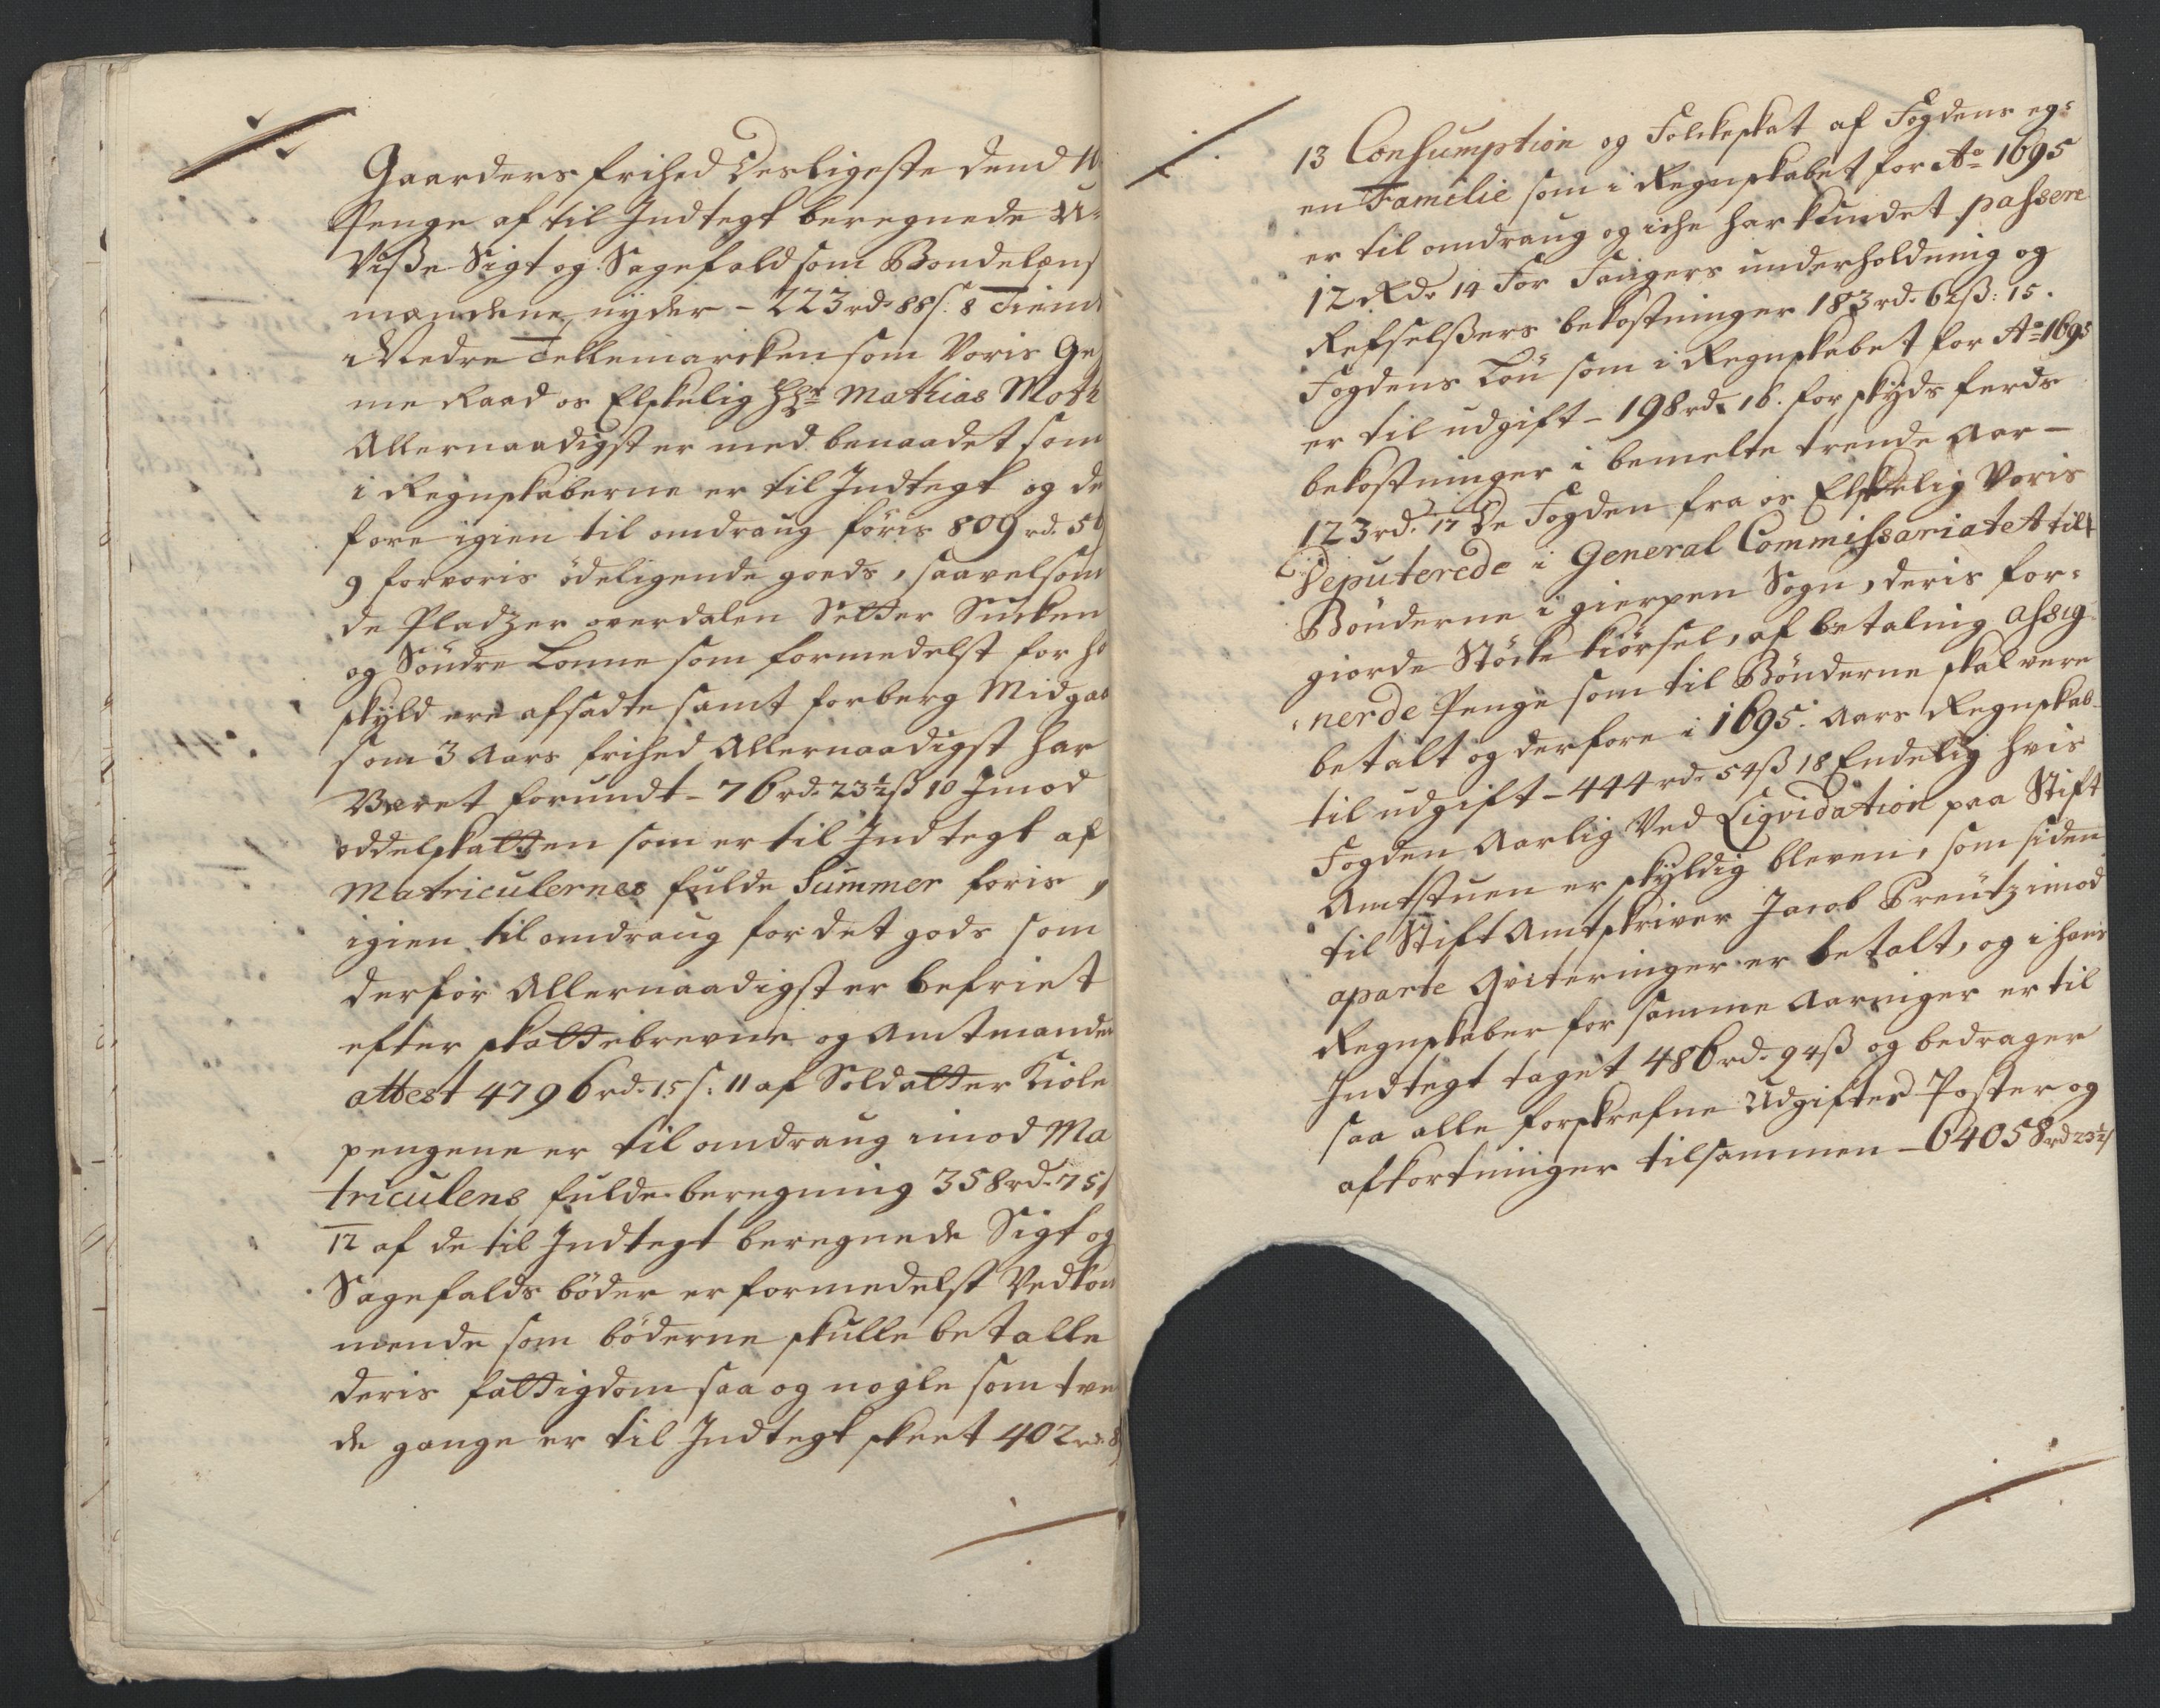 Gaarders frihed Desligeste dend 10
Penge af til Indtegt beregnede u-
Viße Sigt og Sagefald som Bondelens
mændene nyder - 223 rd. 88 s. 8 Tiende
i Nedre Tellemarcken som Voris Ge
me Raad os Elskelig Hr Mathias Moth
Allernaadigst er med benaadet som
i Regnskaberne er til Indtegt og de
fore igien til omdraug föris 809 rd. 56
9 for voris ödeligende goeds, saavelsom
de Pladzer overdalen Setter Sucken
og Söndre Lonne som formedelst for hö
skyld ere afsadte samt forberg Midgaa
som 3 Aars frihed Allernaadigst har
Været forundt - 76 rd. 23½ ß 10 Imod
oddelskatten som er til Indtegt af
Matriculernes fulde Summer foris,
igien til omdraug for det gods som
derfor Allernaadigst er befriet
efter skattebrevene og Amtmandens
attest 4796 rd. 15 s: 11 af Soldatter Kiole
pengene er til omdraug imod Ma
triculens fulde beregning 358 rd. 75 s
12 af de til Indtegt beregnede Sigt og
Sagefalds böder er formedelst Vedkom
mende som böderne skulle betalle
deris fattigdom saa og nogle som tve
de gange er til Indtegt skeet 402 rd. 8
13 Consumption og Folckeskat af Fogdens eg-
en Familie som i Regnskabet for Ao 1695
er til omdraug og iche har kundet passere
12 Rdr 14 For Fangers underholdning og
Refselßers bekostninger 183 rd. 62 ß: 15.
Fogdens Lön som i Regnskabet for Ao 1695
er til udgift - 198 rd. 16. for skyds ferds
bekostninger i bemelte trende Aar -
123 rd. 17 De Fogden fra os Elskelig Voris
Deputerede i General Commissariatet till
Bönderne i gierpen Sogn, deris for-
giorde Stöcke kiörsel, af betaling assig
nerde Penge som til Bönderne skal vere
betalt og derfore i 1695. Aars Regnskab
til udgift - 444 rd. 54 ß 18 Endelig hvis
Fogden Aarlig Ved Liqvidation paa Stift
Amtstuen er skyldig bleven, som siden
til Stift Amtskriver Jacob Preutz imod
aparte Qviteringer er betalt, og i hans
Regnskaber for samme Aaringer er til
Indtegt taget 486 rd. 94 ß og bedrager
saa alle forskrefne Udgifter Poster og
afkortninger tilsammen - 64058 rd 23½ s